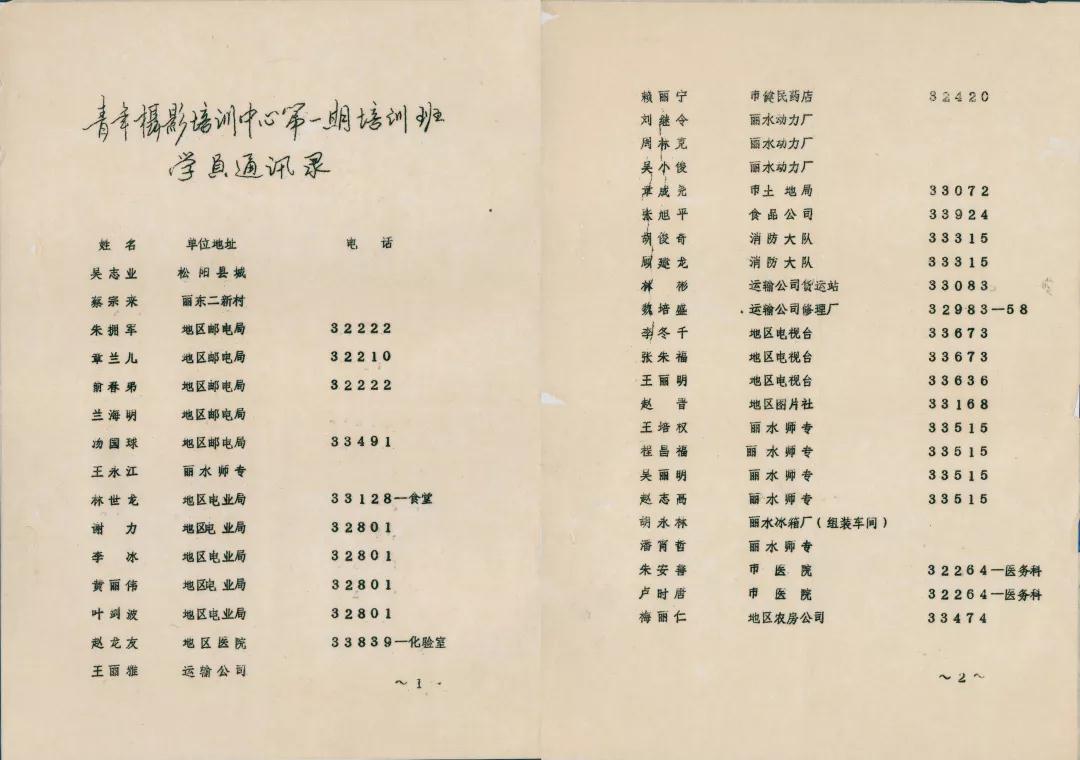 青年摄影培训中心第一期培训班
学员通讯录
姓名 单位地址 电话
吴志业 松阳县城
蔡宗来 丽东二新村
朱拥军 地区邮电局 32222
章兰儿 地区邮电局 32210
俞春弟 地区邮电局 32222
兰海明 地区邮电局
国球 地区邮电局 33491
王永江 丽水师专
林世龙 地区电业局 33128—食堂
谢力 地区电业局 32801
李冰 地区电业局 32801
黄丽伟 地区电业局 32801
叶剑波 地区电业局 32801
赵龙友 地区医院 33839—化验室
王丽雅 运输公司
～1
赖丽宁 市健民药店 32420
刘继令 丽水动力厂
周标克 丽水动力厂
吴小俊 丽水动力厂
章成尧 市土地局 33072
张旭平 食品公司 33924
胡俊奇 消防大队 33315
顾建龙 消防大队 33315
林彬 运输公司货运站 33083
魏培盛 运输公司修理厂 32983—58
李冬千 地区电视台 33673
张朱福 地区电视台 33673
王丽明 地区电视台 33636
赵晋 地区图片社 33168
王培权 丽水师专 33515
程昌福 丽水师专 33515
吴丽明 丽水师专 33515
赵志高 丽水师专 33515
胡永林 丽水冰箱厂(组装车间)
潘肖哲 丽水师专
朱安善 市医院 32264—医务科
卢时唐 市医院 32264—医务科
梅丽仁 地区农房公司 33474
～2～